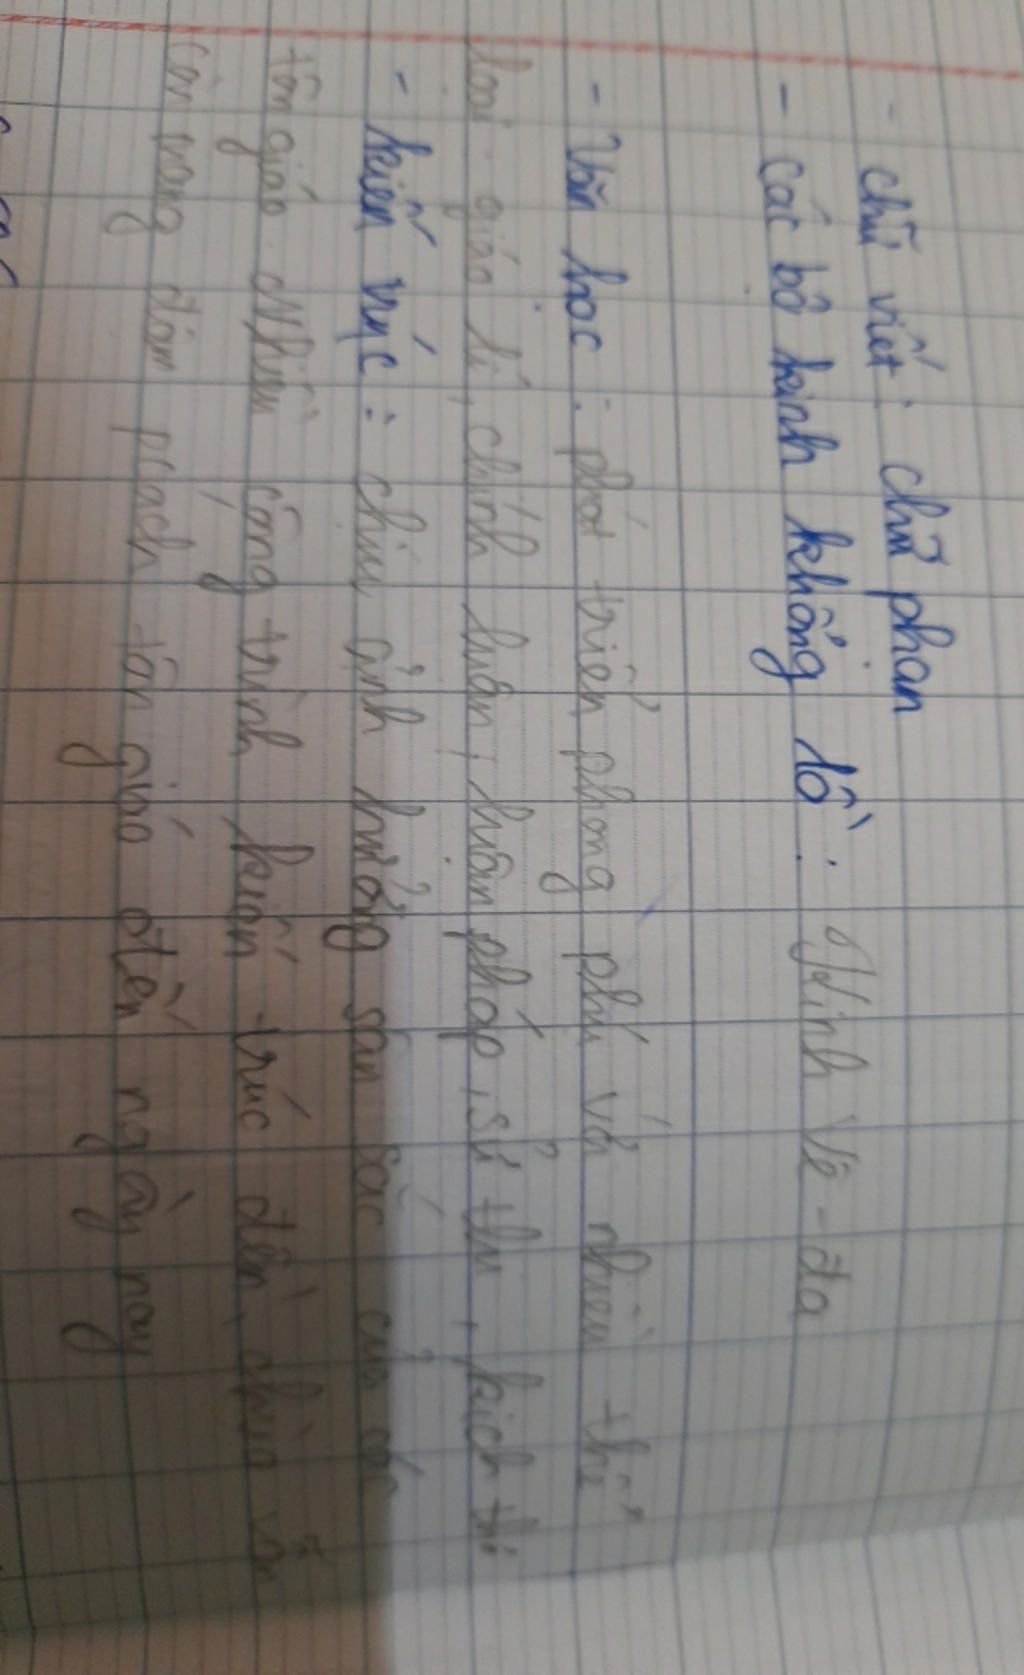 - chữ viết: chữ phạn
- các bộ kinh khổng lồ: Kinh Vê-đa
- Văn học: phát triển phong phú với nhiều thể
loại: giáo lí, chính luận, luận pháp, sử thi, kịch thơ
- kiến trúc: chịu ảnh hưởng sân sắc của các
tôn giáo. Nhiều công trình kiến trúc đền, chùa vẫn
còn mang đậm phách tôn giáo đến ngày nay